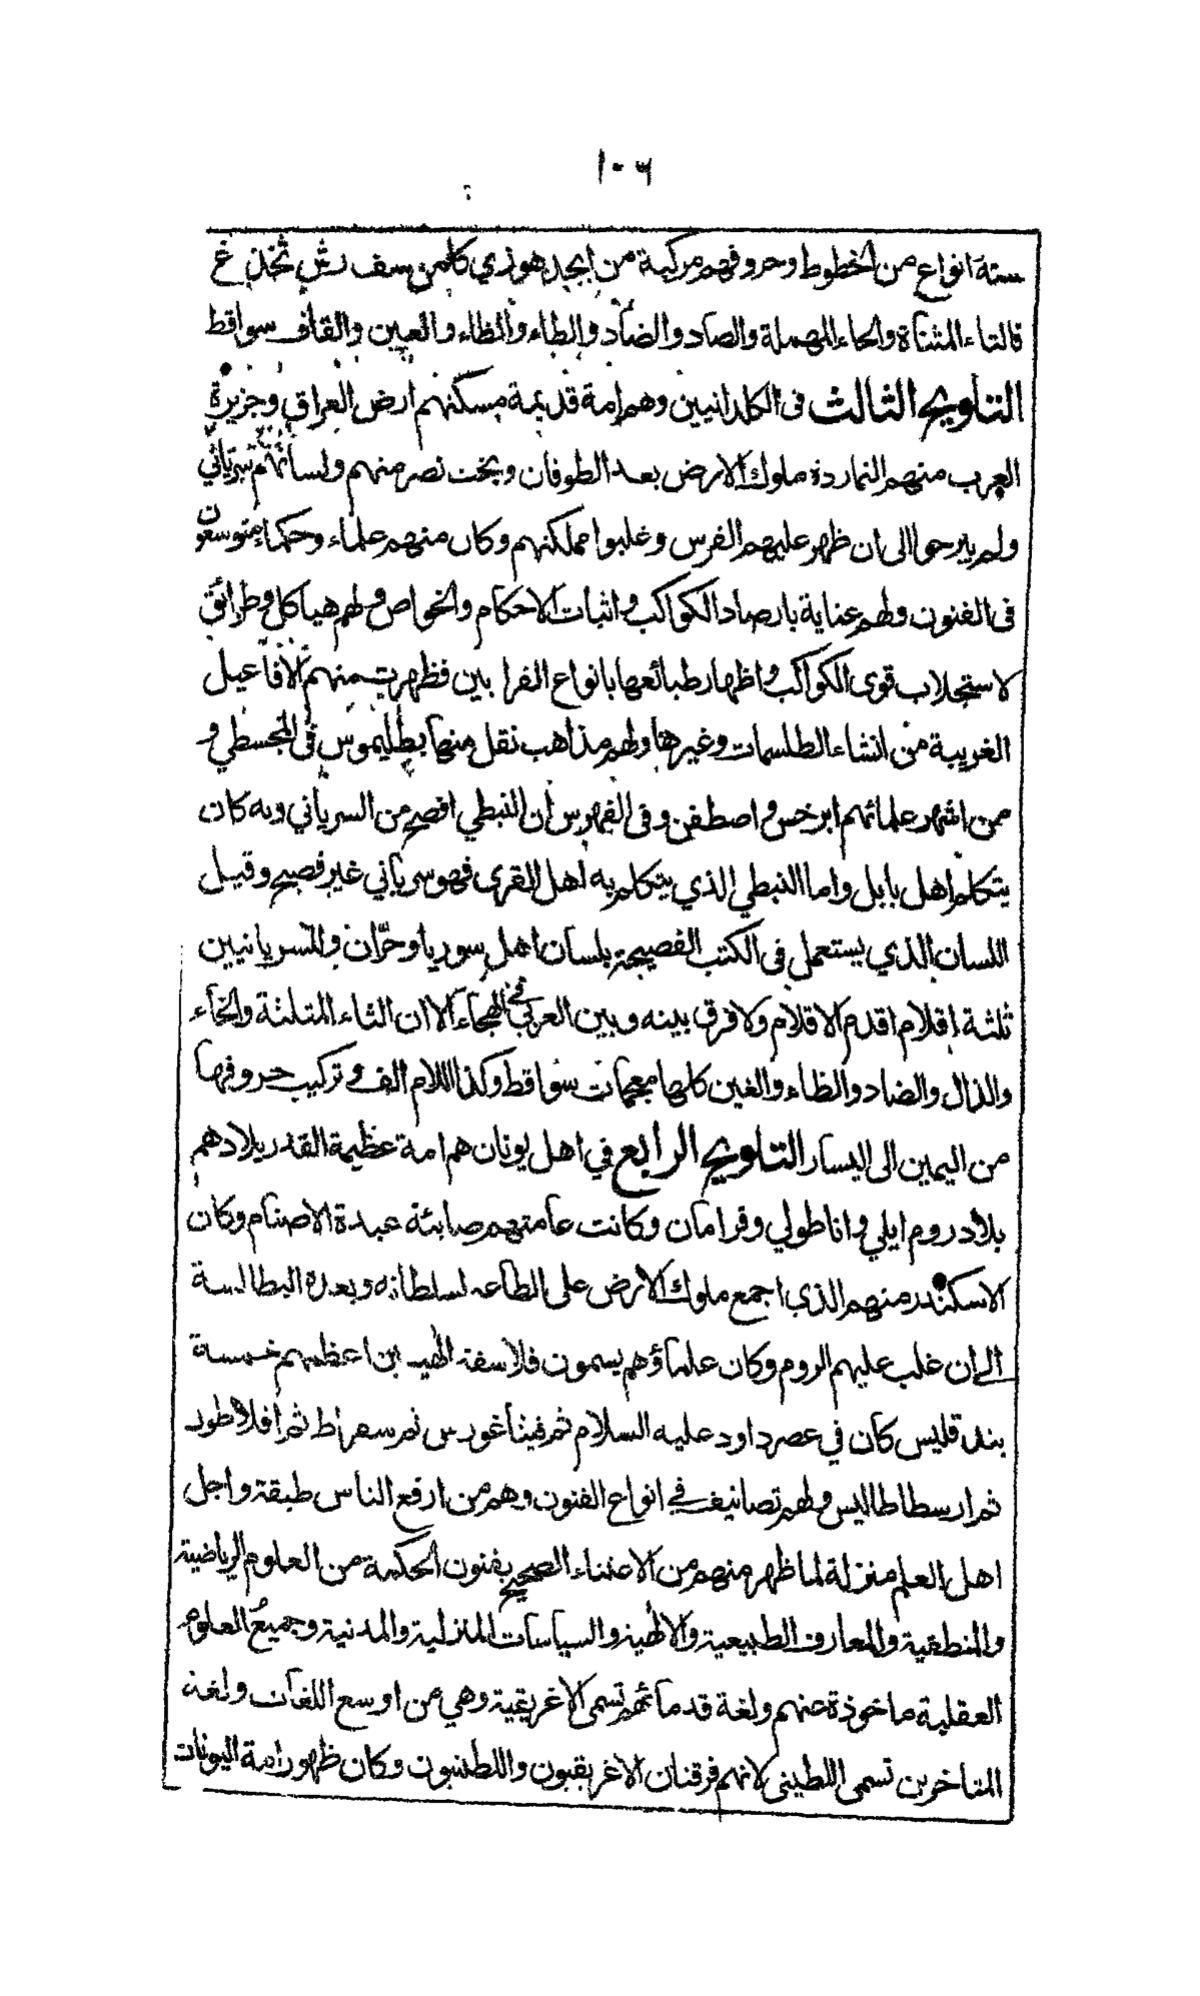 ١٠٦
ستة انواع من الخطوط وحروفهم مركبة من ابجد هوزي كلمن سف رش ثخذ غ
فالتاء المثناة والحاء المهملة والصاد والضاد والطاء والظاء والعين والقاف سواقط
التلويح الثالث فى الكلدانيين وهم امة قديمة مسكنهم ارض العراق وجزيرة
العرب منهم النماردة ملوك الارض بعد الطوفان وبخت نصر منهم ولسانهم سرياني
ولم يبرحوا الى ان ظهر عليهم الفرس وغلبوا مملكتهم وكان منهم علماء وحكماء متوسعون
فى الفنون ولهم عناية بارصاد الكواكب واثبات الاحكام والخواص ولهم هياكل وطرائق
لاستجلاب قوى الكواكب واظهار طبائعها بانواع القرابين فظهرت منهم الافاعيل
الغريبة من انشاء الطلسمات وغيرها ولهم مذاهب نقل منها بطليموس فى المجسطي و
من اشهر علمائهم ابرخس واصطفن وفى الفهرس ان النبطي افصح من السرياني وبه كان
يتكلم اهل بابل واما النبطي الذي يتكلم به اهل القرى فهو سرياني غير فصيح وقيل
اللسان الذي يستعمل فى الكتب الفصيحة بلسان اهل سوريا وحرّان وللسريانيين
ثلثة اقلام اقدم الاقلام ولا فرق بينه وبين العربي في الهجاء الا ان الثاء المثلثة والخاء
والذال والضاد والظاء والغين كلها معجمات سواقط وكذا اللام الف وتركيب حروفها
من اليمين الى اليسار التلويح الرابع في اهل يونان هم امة عظيمة القدر بلادهم
بلاد روم ايلي واناطولي وقرامان وكانت عامتهم صابئة عبدة الاصنام وكان
الاسكندر منهم الذي اجمع ملوك الارض على الطاعه لسلطانه وبعده البطالسة
الى ان غلب عليهم الروم وكان علماؤهم يسمون فلاسفة الهيين اعظمهم خمسة
بندقليس كان في عصر داود عليه السلام ثم فيثاغورس ثم سقراط ثم افلاطون
ثم ارسطاطاليس ولهم تصانيف في انواع الفنون وهم من ارفع الناس طبقة واجل
اهل العلم منزلة لما ظهر منهم من الاعتناء الصحيح بفنون الحكمة من العلوم الرياضية
والمنطقية والمعارف الطبيعية والالهية والسياسات المنزلية والمدنية وجميع العلوم
العقلية ماخوذة عنهم ولغة قدمائهم تسمى الاغريقية وهي من اوسع اللغات ولغة
المتاخرين تسمى اللطينى لانهم فرقتان الاغريقيون واللطينيون وكان ظهور امة اليونان